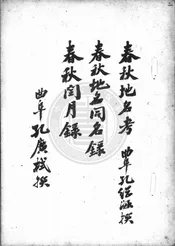 春秋地名考 曲阜孔継涵撰
春秋地名同名録
春秋閏月録
曲阜 孔廣栻撰